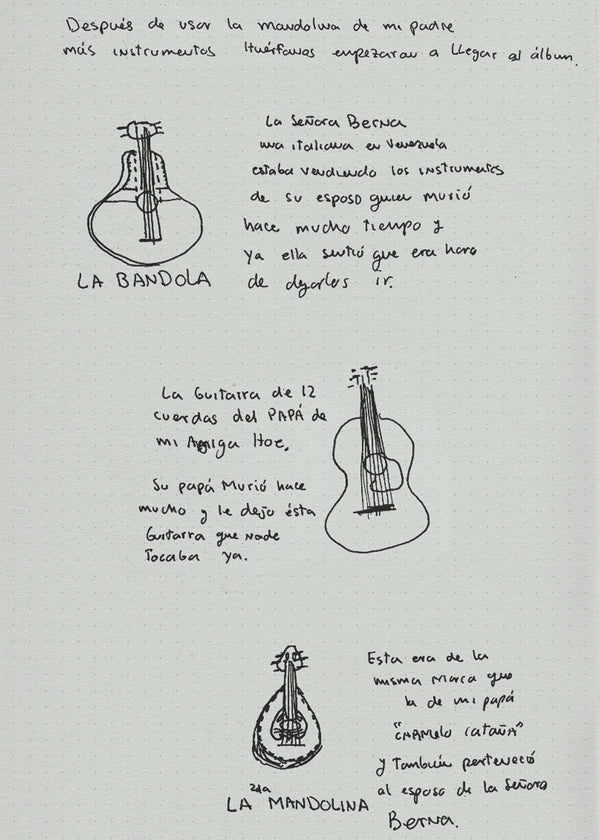 Después de usar la mandolina de mi padre
más instrumentos Huérfanos empezaron a llegar al álbum.
La Señora Berna
una italiana en Venezuela
estaba vendiendo los instrumentos
de su esposo quien murió
hace mucho tiempo y
ya ella sintió que era hora
de dejarlos ir.
LA BANDOLA
La Guitarra de 12
cuerdas del PAPÁ de
mi Amiga
Su papá Murió hace
mucho y le dejo ésta
Guitarra que nadie
Tocaba ya.
Esta era de la
misma Marca que
la de mi papá
y También perteneció
al esposo de la Señora
Berna.
2da
LA MANDOLINA